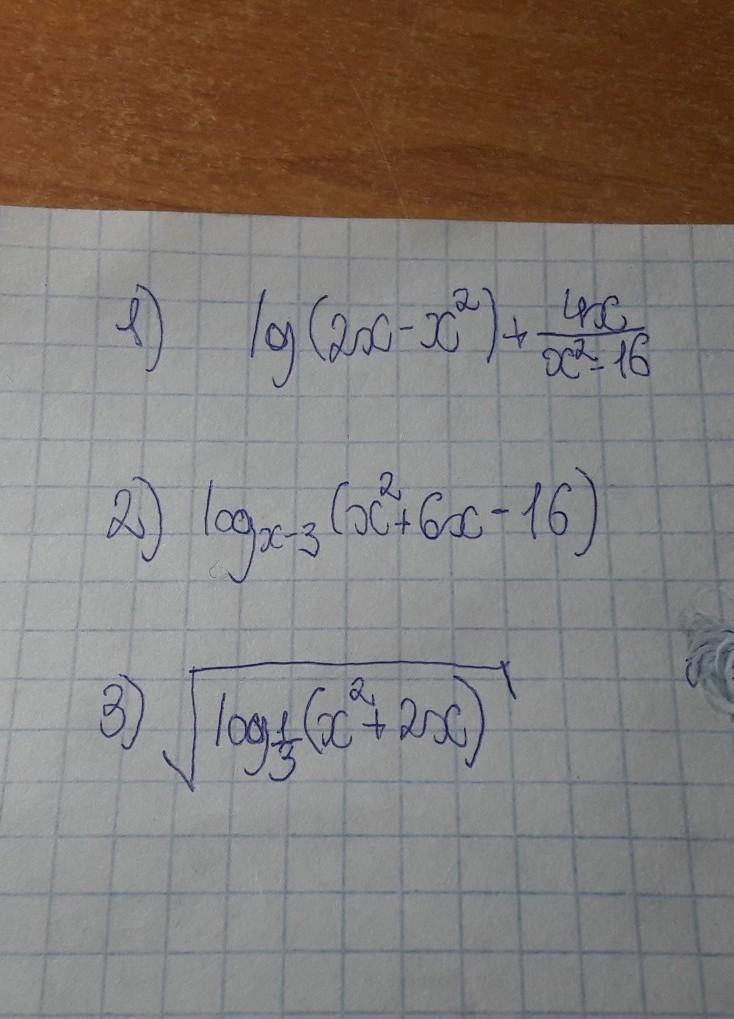 1) lg(2x-x²)+4x/(x²-16)
2) logₓ₋₃(x²+6x-16)
3) √(log_{1/3}(x²+2x))